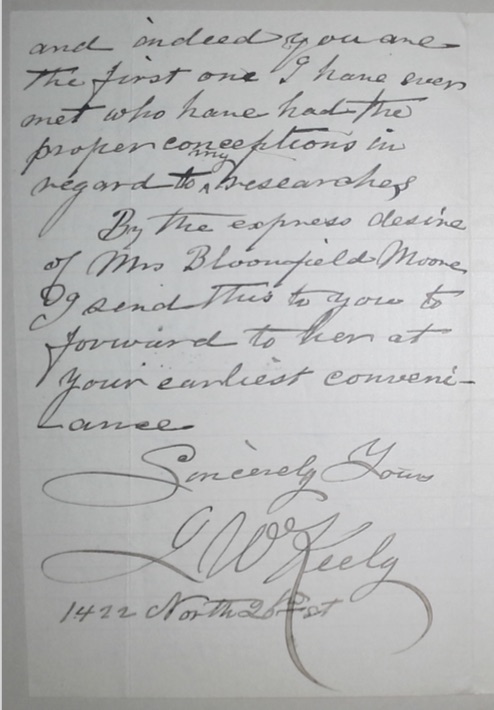 and indeed you are
the first one I have ever
met who have had the
proper conceptions in
my
regard to ^ researches
By the express desire
of Mrs Bloomfield Moore
I send this to you to
forward to her at
your earliest conveni-
ance
Sincerely Yours
J W Keely
1422 North 20th st